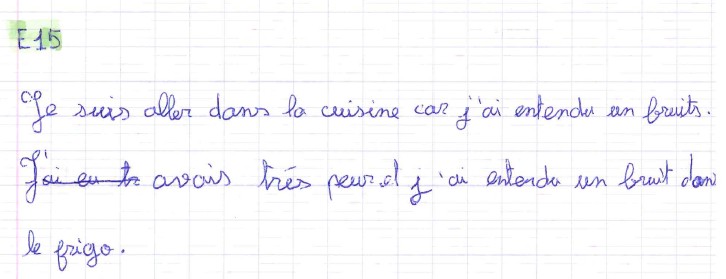 E15
Je suis aller dans la cuisine car j'ai entendu un bruits.
J'ai eu tr avais très peur.d j'ai entendu un bruit dans
le frigo.